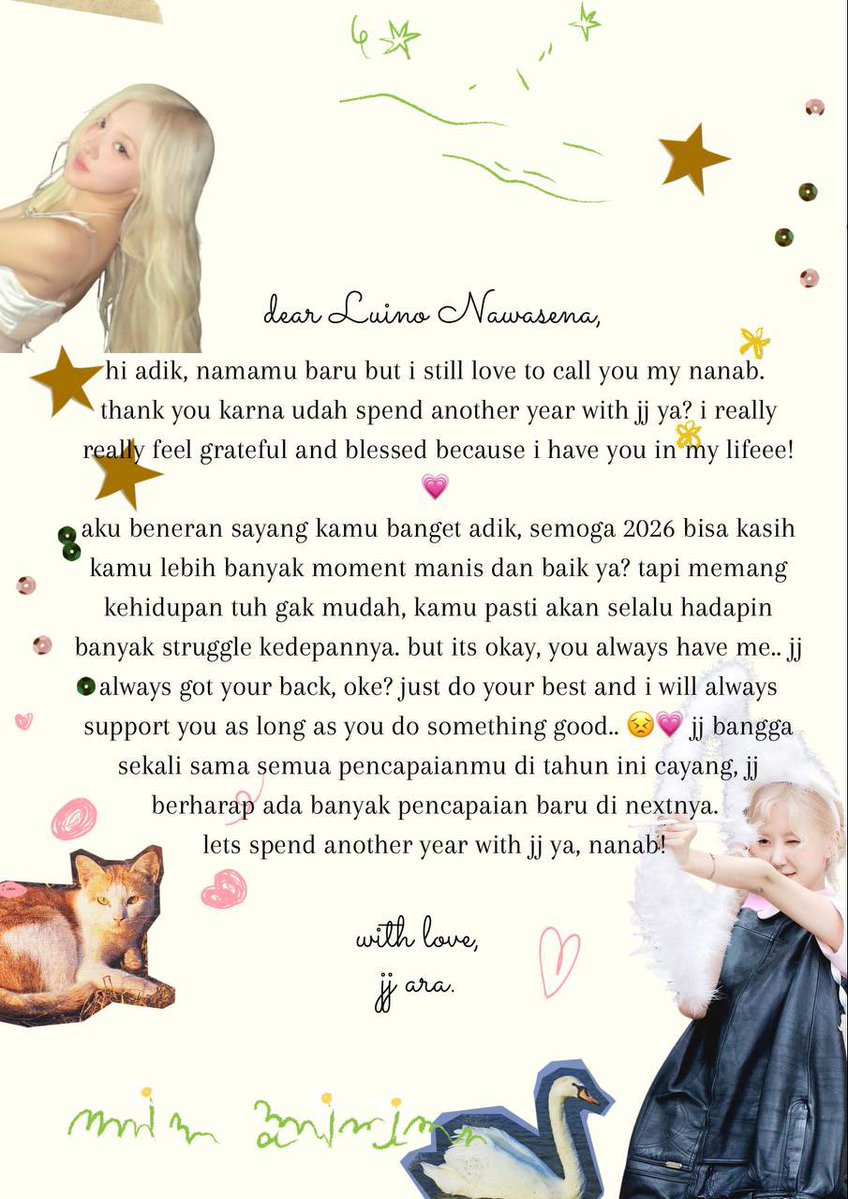 dear Luino Nawasena,
hi adik, namamu baru but i still love to call you my nanab.
thank you karna udah spend another year with jj ya? i really
really feel grateful and blessed because i have you in my lifeee!
💗
aku beneran sayang kamu banget adik, semoga 2026 bisa kasih
kamu lebih banyak moment manis dan baik ya? tapi memang
kehidupan tuh gak mudah, kamu pasti akan selalu hadapin
banyak struggle kedepannya. but its okay, you always have me.. jj
always got your back, oke? just do your best and i will always
support you as long as you do something good.. 😣💗 jj bangga
sekali sama semua pencapaianmu di tahun ini cayang, jj
berharap ada banyak pencapaian baru di nextnya.
lets spend another year with jj ya, nanab!
with love,
jj ara.